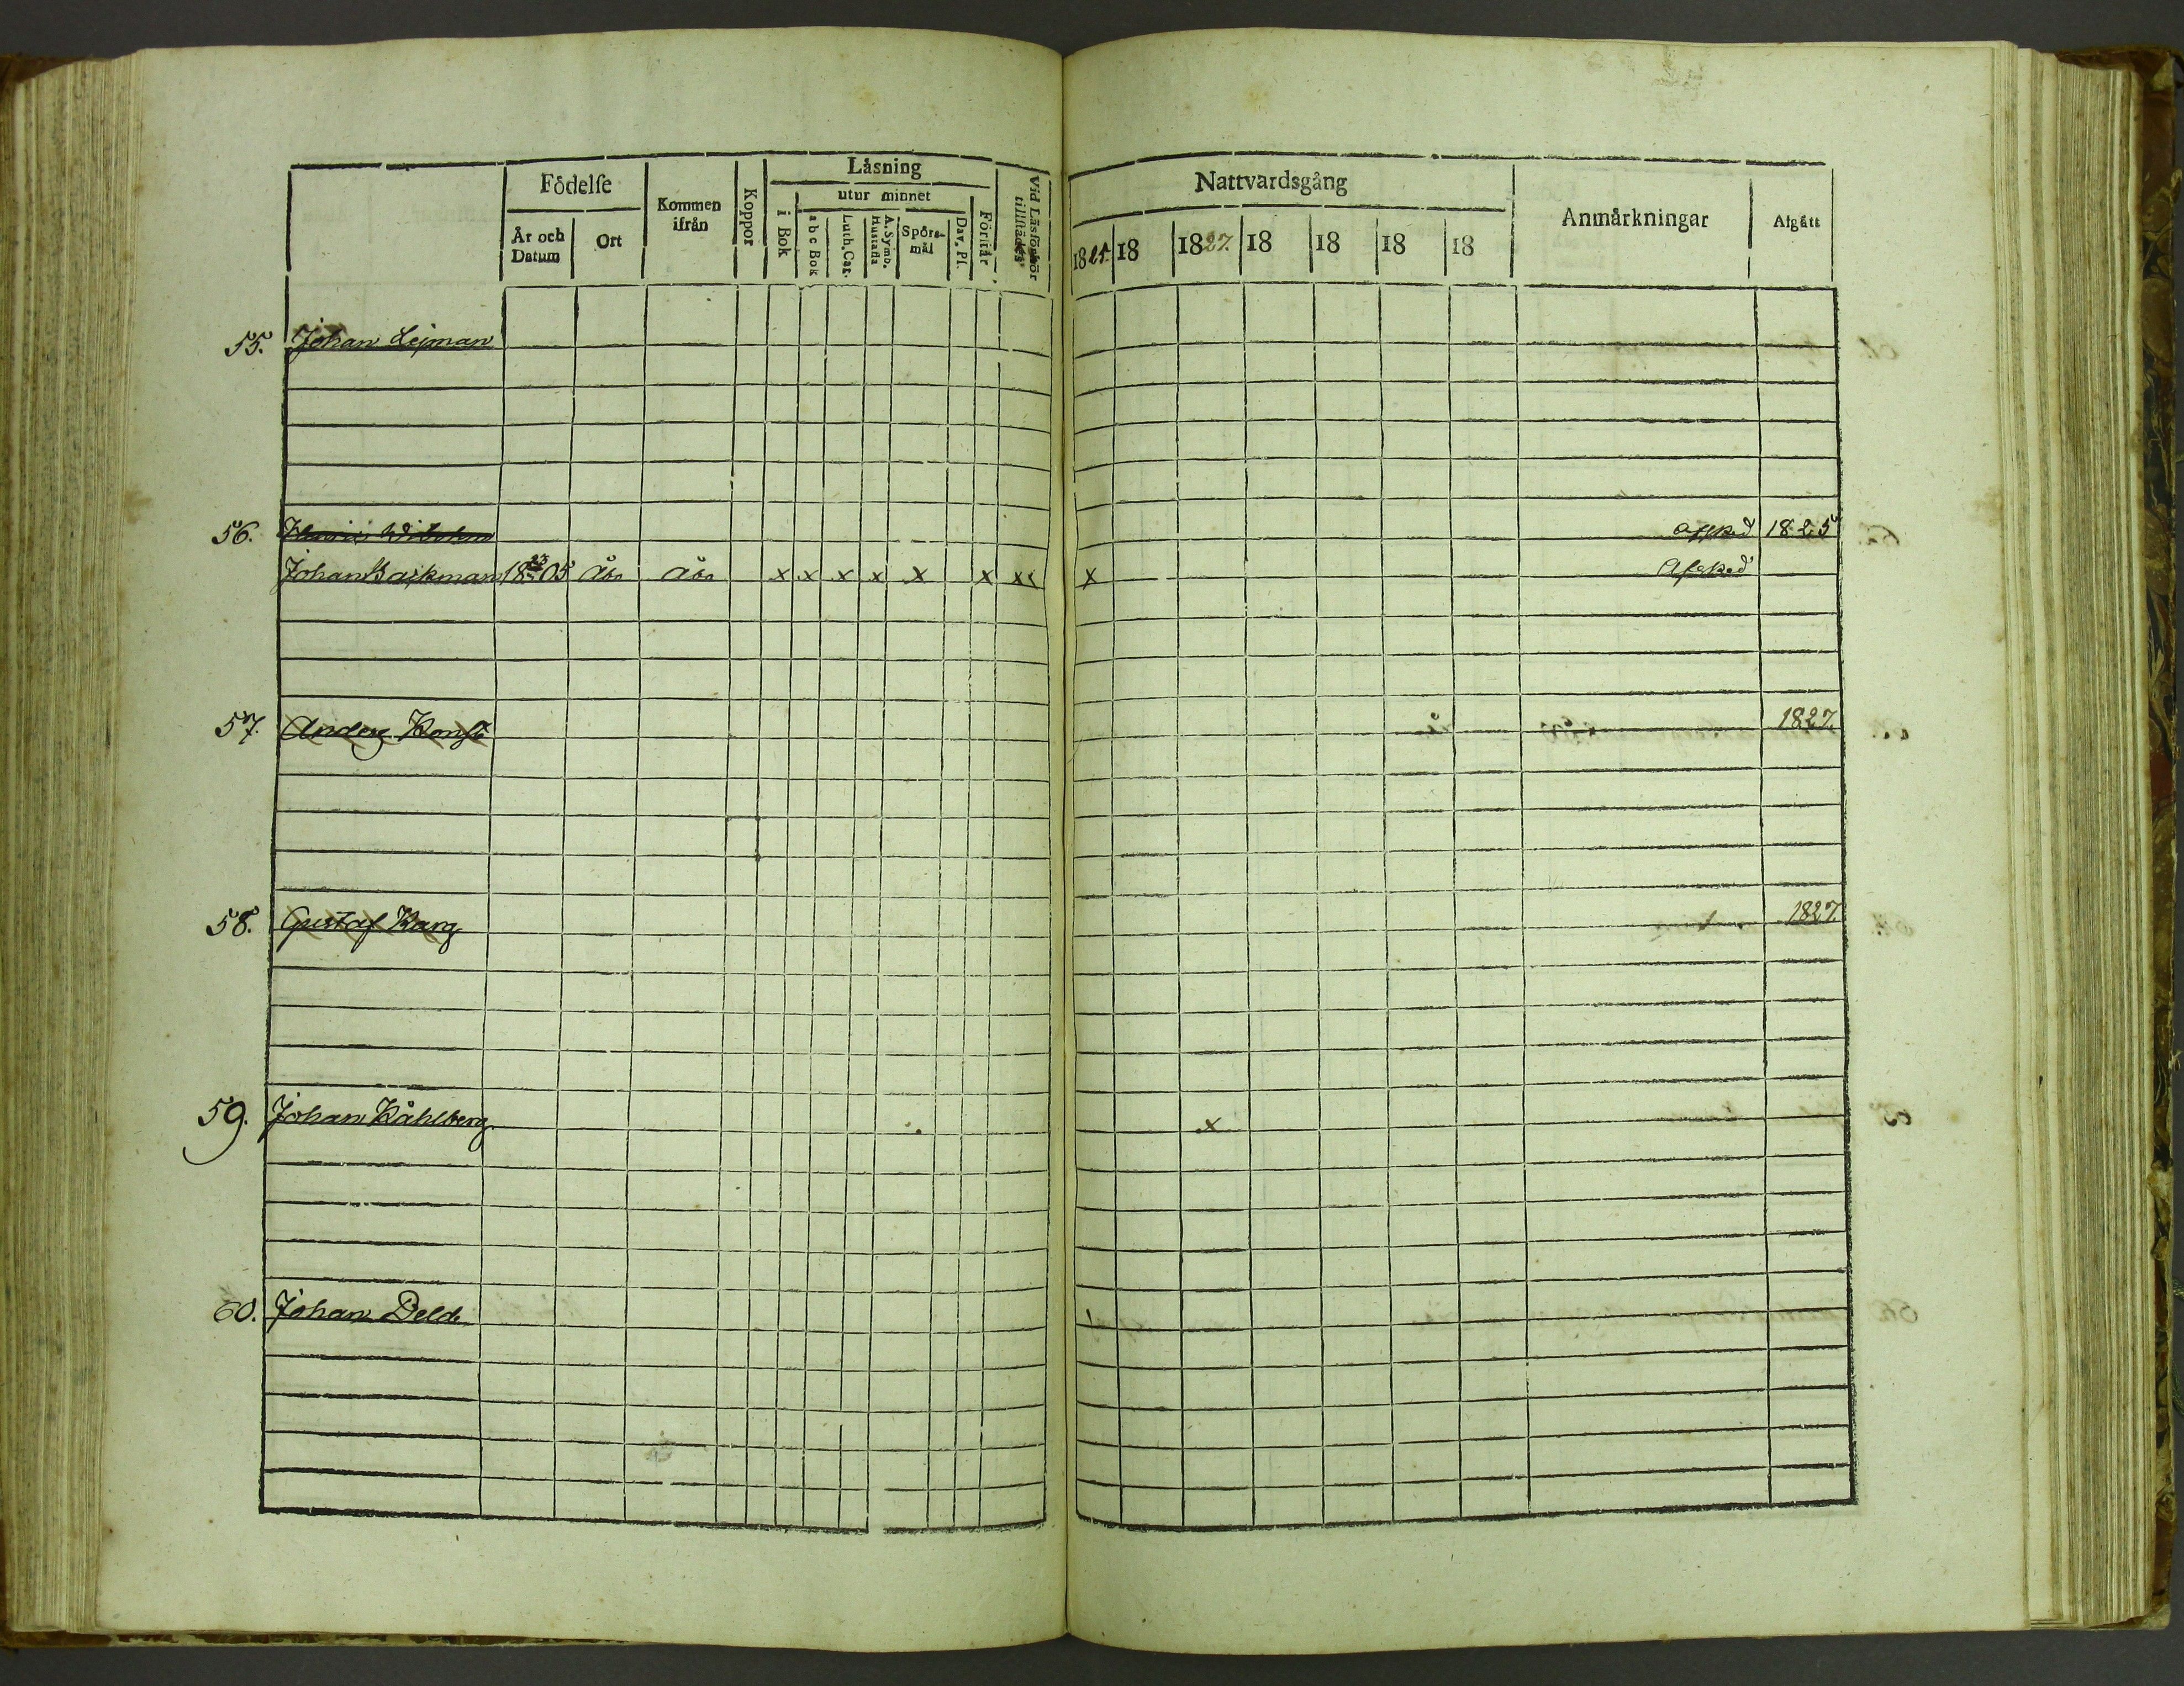 Födelse
År och Datum
Ort
Kommen ifrån
Koppor
Läsning
utur minnet
i Bok
a b c Bok
Luth. Cat.
A. Symb. Hustafla
Spörsmål
Dav. Ps.
Förstår
Vid Läsförhör tillstädes
Nattvardsgång
1825. 18 1827. 18 18 18 18
Anmärkningar
Afgått
55. Johan Lejman
56. Afsked 1825
Johan Backman 18 23/2 05 Åbo Åbo x x x x x x xx x Afsked
57. Anders Konst 1827.
58. Gustaf Karg 1827.
59. Johan Kåhlberg x
60. Johan Delde